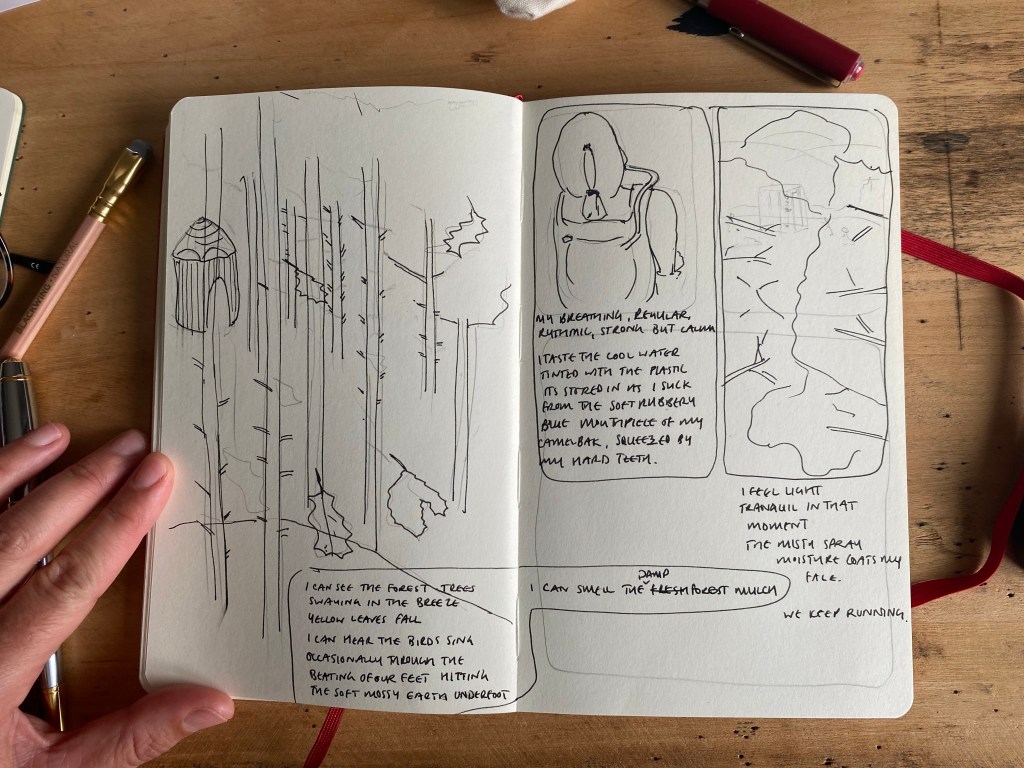 I CAN SEE THE FOREST TREES
SWAYING IN THE BREEZE
YELLOW LEAVES FALL
I CAN HEAR THE BIRDS SING
OCCASIONALLY THROUGH THE
BEATING OF OUR FEET HITTING
THE SOFT MOSSY EARTH UNDERFOOT
I CAN SMELL THE DAMP FRESH FOREST MULCH
MY BREATHING, REGULAR,
RYTHMIC, STRONG BUT CALM
I TASTE THE COOL WATER
TINTED WITH THE PLASTIC
ITS STORED IN AS I SUCK
FROM THE SOFT RUBBERY
BLUE MOUTHPIECE OF MY
CAMELBAK, SQUEEZED BY
MY HARD TEETH.
I FEEL LIGHT
TRANQUIL IN THAT
MOMENT
THE MISTY SPRAY
MOISTURE COATS MY
FACE.
WE KEEP RUNNING.